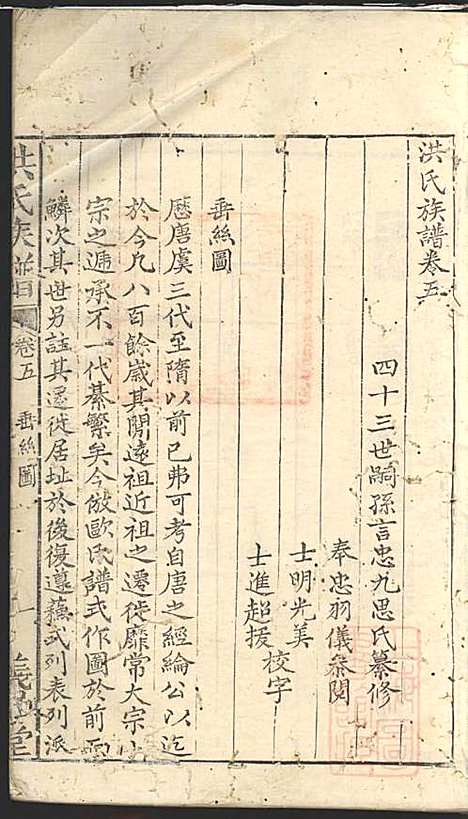 洪氏族譜卷五
四十三世嗣孫言忠九思氏纂修
奉忠羽儀叅閱
士明光美
士進超拔
校字
垂絲圖
歷唐虞三代至隋以前已弗可考自唐之經綸公以迄
於今凡八百餘歲其間遠祖近祖之遷徙靡常大宗小
宗之遞承不一代綦繁矣今倣歐氏譜式作圖於前而
鱗次其世另誌其遷徙居址於後復遵蘇式列表列派
洪氏族譜
卷五
垂絲圖
一
堂